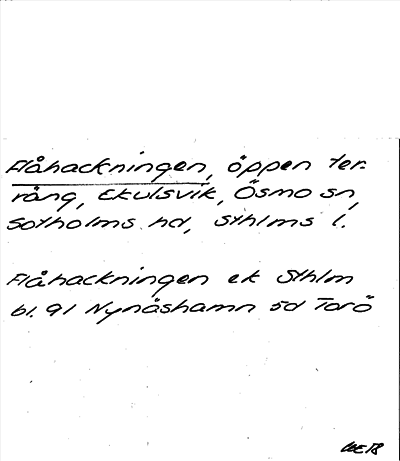 Flåhackningen, öppen ter-
räng, Ekulsvik, Ösmo sn,
Sotholms hd, Sthlms l.
Flåhackningen ek Sthlm
bl. 91 Nynäshamn 5d Torö